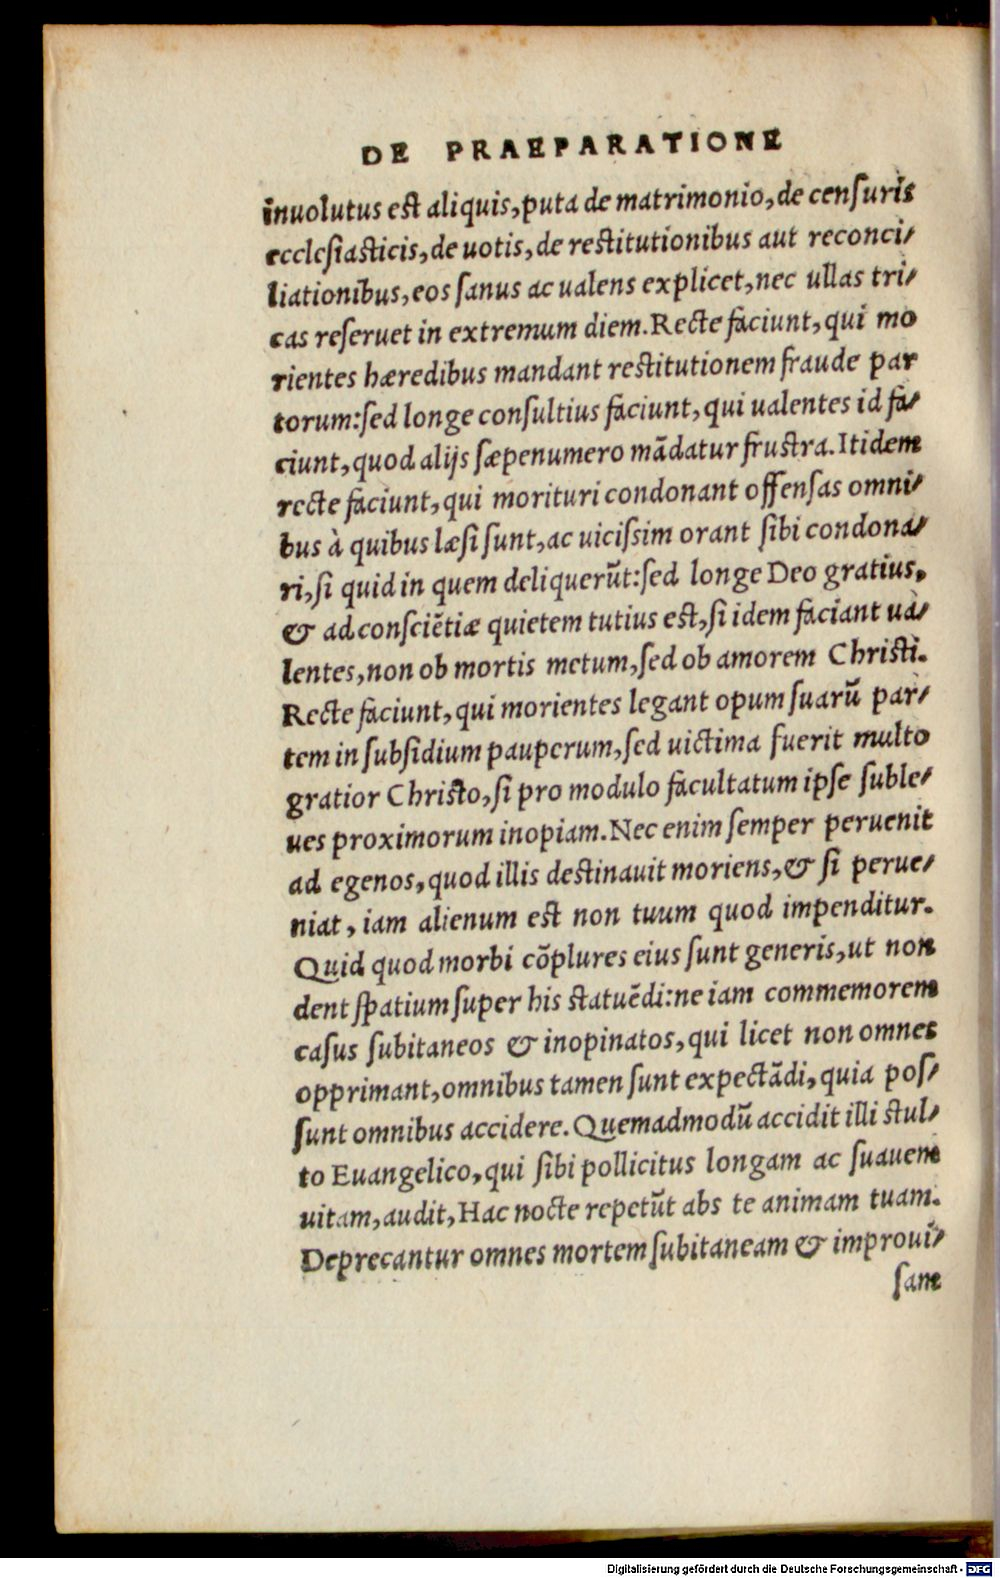 DE PRAEPARATIONE
inuolutus est aliquis, puta de matrimonio, de censuris
ecclesiasticis, de uotis, de restitutionibus aut reconci/
liationibus, eos sanus ac ualens explicet, nec ullas tri/
cas reseruet in extremum diem. Recte faciunt, qui mo
rientes hæredibus mandant restitutionem fraude par
torum: sed longe consultius faciunt, qui ualentes id fa/
ciunt, quod alijs sæpenumero mãdatur frustra. Itidem
recte faciunt, qui morituri condonant offensas omni/
bus à quibus læsi sunt, ac uicissim orant sibi condona/
ri, si quid in quem deliquerũt: sed longe Deo gratius,
& ad consciẽtiæ quietem tutius est, si idem faciant ua/
lentes, non ob mortis metum, sed ob amorem Christi.
Recte faciunt, qui morientes legant opum suarũ par/
tem in subsidium pauperum, sed uictima fuerit multo
gratior Christo, si pro modulo facultatum ipse suble/
ues proximorum inopiam. Nec enim semper peruenit
ad egenos, quod illis destinauit moriens, & si perue/
niat, iam alienum est non tuum quod impenditur.
Quid quod morbi cõplures eius sunt generis, ut non
dent spatium super his statuẽdi: ne iam commemorem
casus subitaneos & inopinatos, qui licet non omnes
opprimant, omnibus tamen sunt expectãdi, quia pos/
sunt omnibus accidere. Quemadmodũ accidit illi stul/
to Euangelico, qui sibi pollicitus longam ac suauem
uitam, audit, Hac nocte repetũt abs te animam tuam.
Deprecantur omnes mortem subitaneam & improui/
sam
Digitalisierung gefördert durch die Deutsche Forschungsgemeinschaft - DFG